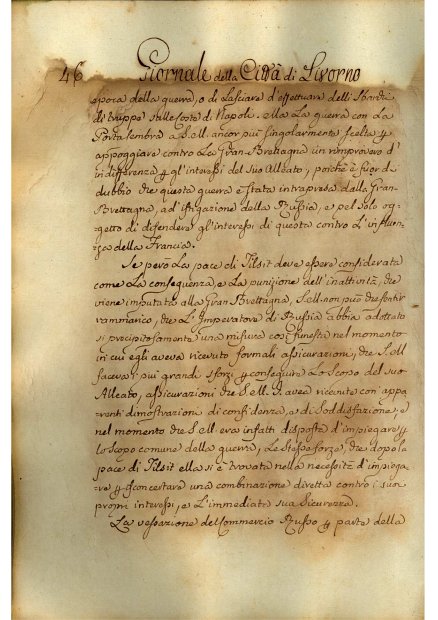 46 Giornale della Città di Livorno
epoca della guerra, o di lasciare d'effettuare delli Sbarchi
di truppe sulle Coste di Napoli. ella La guerra con La
Porta sembra a S. ell. ancor più singolarmente scelta p
appoggiare contro La Gran-Brettagna un rimprovero d'
indifferenza p gl'interessi del suo Alleato, poichè è fuor di
dubbio che questa guerra è stata intrapresa dalla Gran-
Brettagna, ad istigazione della Russia, e pel Solo og-
getto di difendere gl'interessi di questa contro L'influen-
za della Francia.
Se però La pace di Tilsit deve essere considerata
come La conseguenza, e La punizione dell'inattività, che
viene imputata alla Gran Brettagna, S. ell. non può che sentir
rammarico, che L'Imperatore di Russia abbia adottato
sì precipitosamente una misura così funesta nel momento
in cui egli aveva ricevuto formali assicurazioni, che S. ell.
faceva i più grandi sforzi p conseguire Lo Scopo del suo
Alleato, assicurazioni che S. ell. I. avea ricevute con appa-
renti dimostrazioni di confidenza, e di Soddisfazione, e
nel momento che S. ell. era infatti disposta d'impiegare p
lo scopo comune della guerra, Le stesse forze, che dopo la
pace di Tilsit ella si è trovata nella necessità d'impiega-
re p sconcertare una combinazione diretta contro i suoi
proprj interessi, e L'immediata sua Sicurezza.
La vessazione del Commercio Russo p parte della